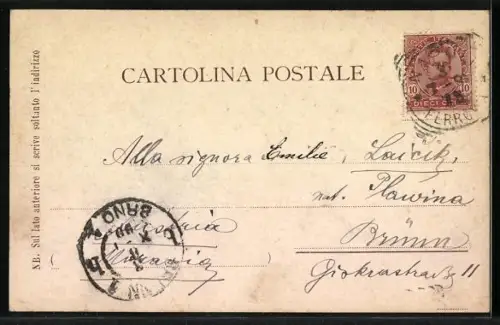 CARTOLINA POSTALE
NB. Sul lato anteriore si scrive soltanto l'indirizzo
10 10
DIECI
FERRO
Alla signora Emilie Laicik,
nat. Plawina
Austria
Moravia
Brünn
BRNO
Giskrastraße 11